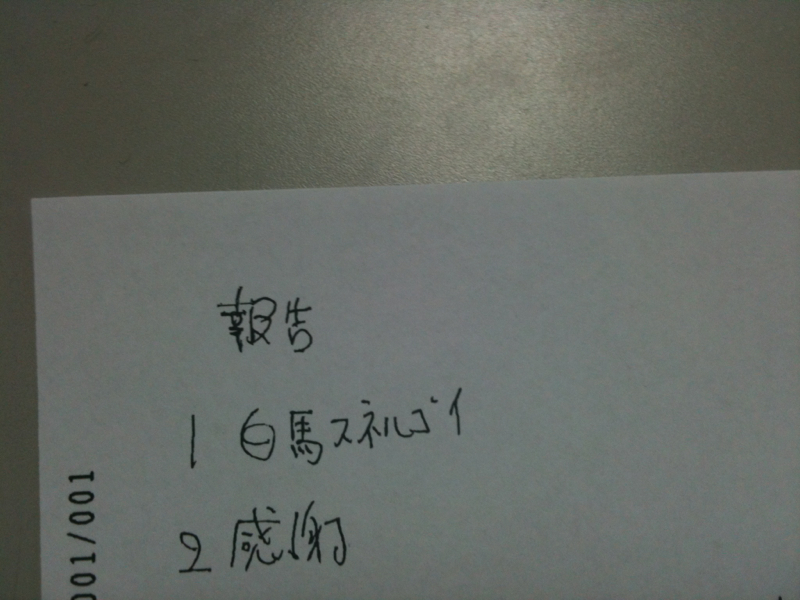 報告
1 白馬スネルゴイ
2 感謝
001/001